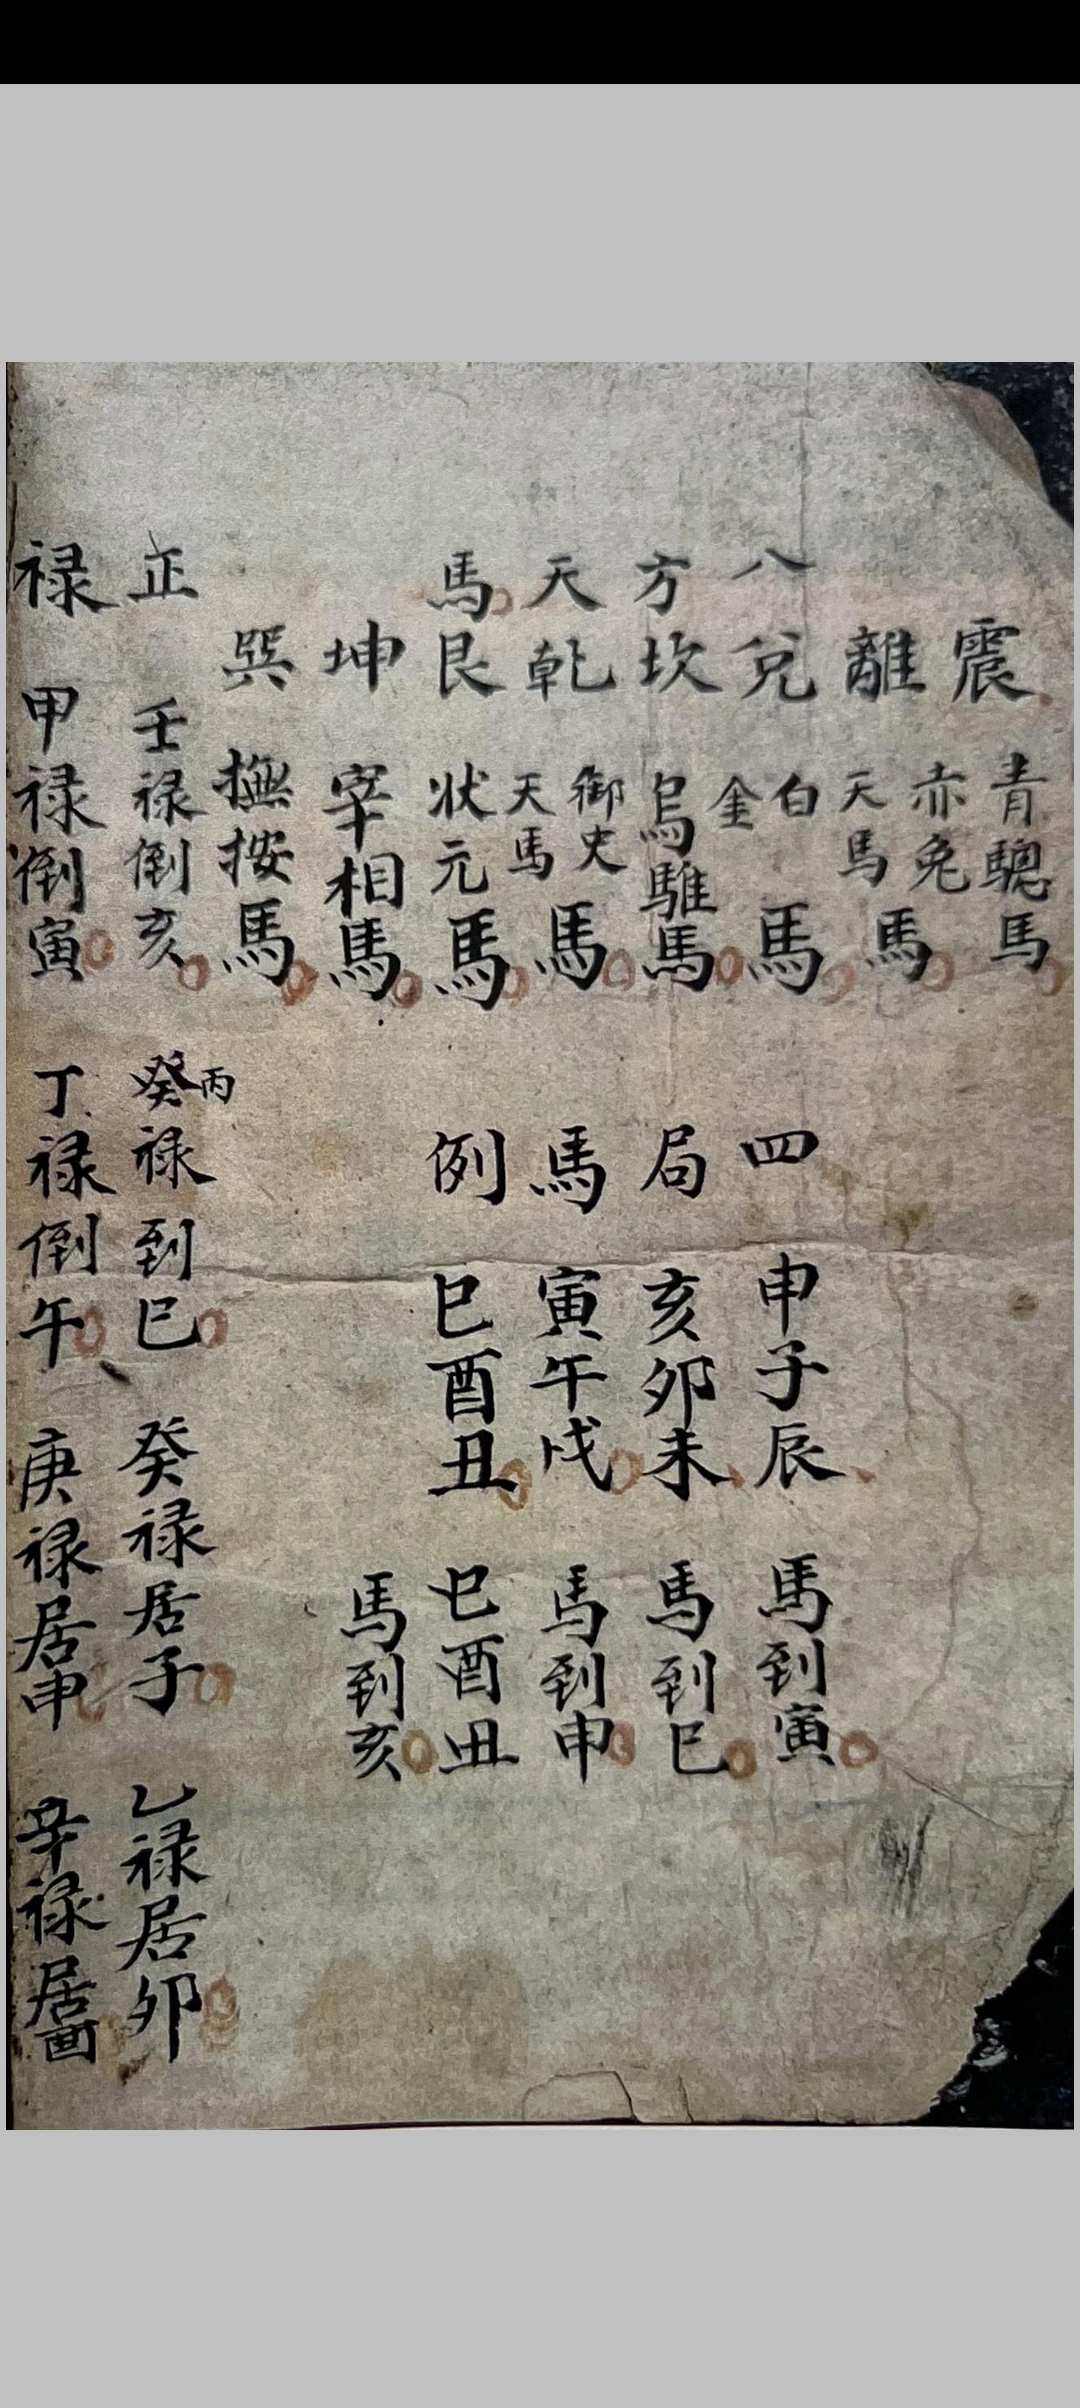 震 青驄馬
離 赤兔天馬馬
八
兌 白金馬
方
坎 烏騅馬
天
乾 御史天馬馬
馬
艮 狀元馬
坤 宰相馬
巽 撫按馬
四 申子辰 馬到寅
局 亥卯未 馬到巳
馬 寅午戌 馬到申
例 巳酉丑 巳酉丑
馬到亥
正 壬禄倒亥 癸丙禄到巳 癸禄居子 乙禄居卯
禄 甲禄倒寅 丁禄倒午 庚禄居申 辛禄居酉